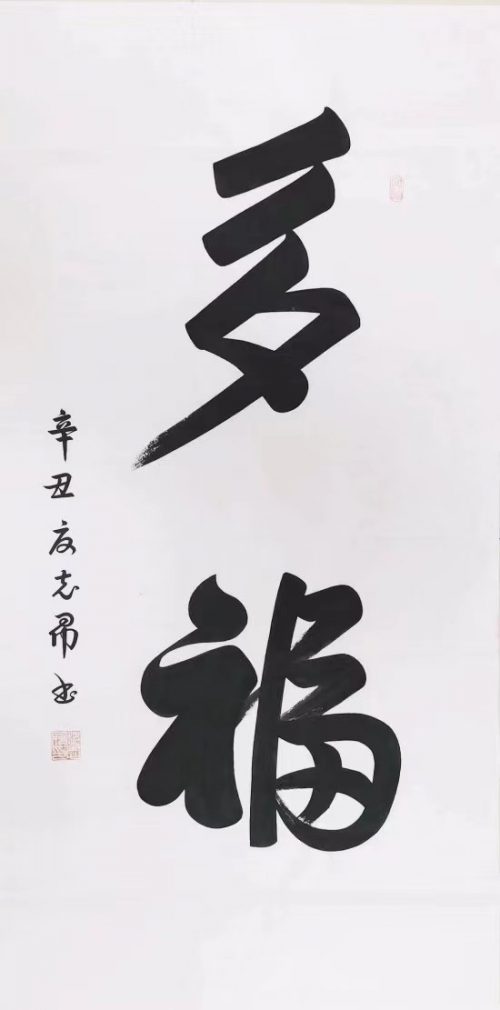 多福
辛丑夜志昂书